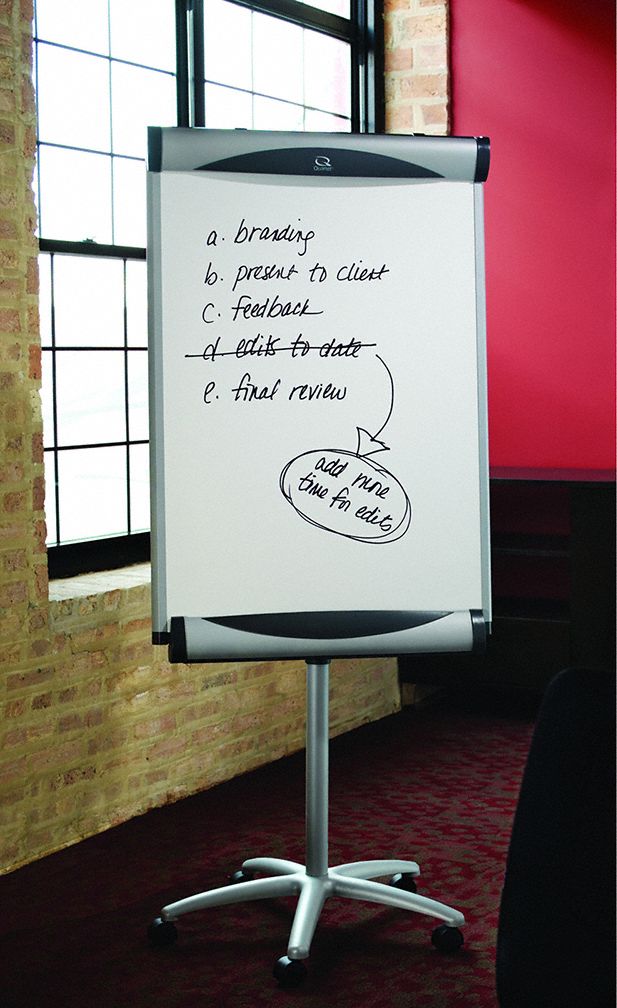 Quartet
a. branding
b. present to client
c. feedback
d. edits to date
e. final review
add more
time for edits